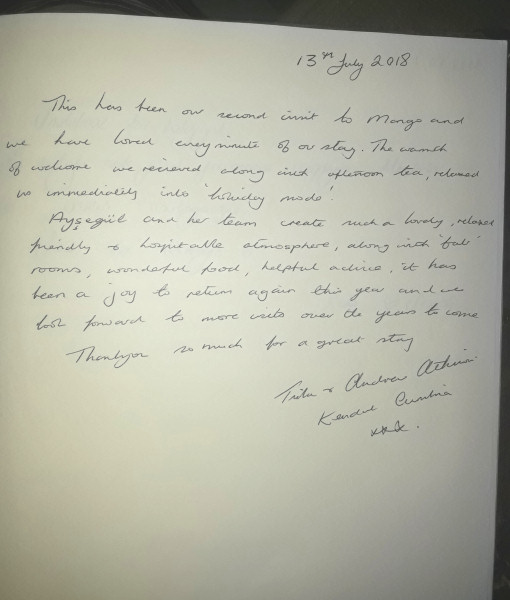 13th July 2018
This has been our second visit to Mango and
we have loved every minute of our stay. The warmth
of welcome we recieved along with afternoon tea, relaxed
us immediately into 'holiday mode'.
Ayşegül and her team create such a lovely, relaxed
friendly & hospitable atmosphere, along with 'fab'
rooms, wonderful food, helpful advice, it has
been a joy to return again this year and we
look forward to more visits over the years to come
Thankyou so much for a great stay
& Andrew
Kendal Cumbria
xxx.